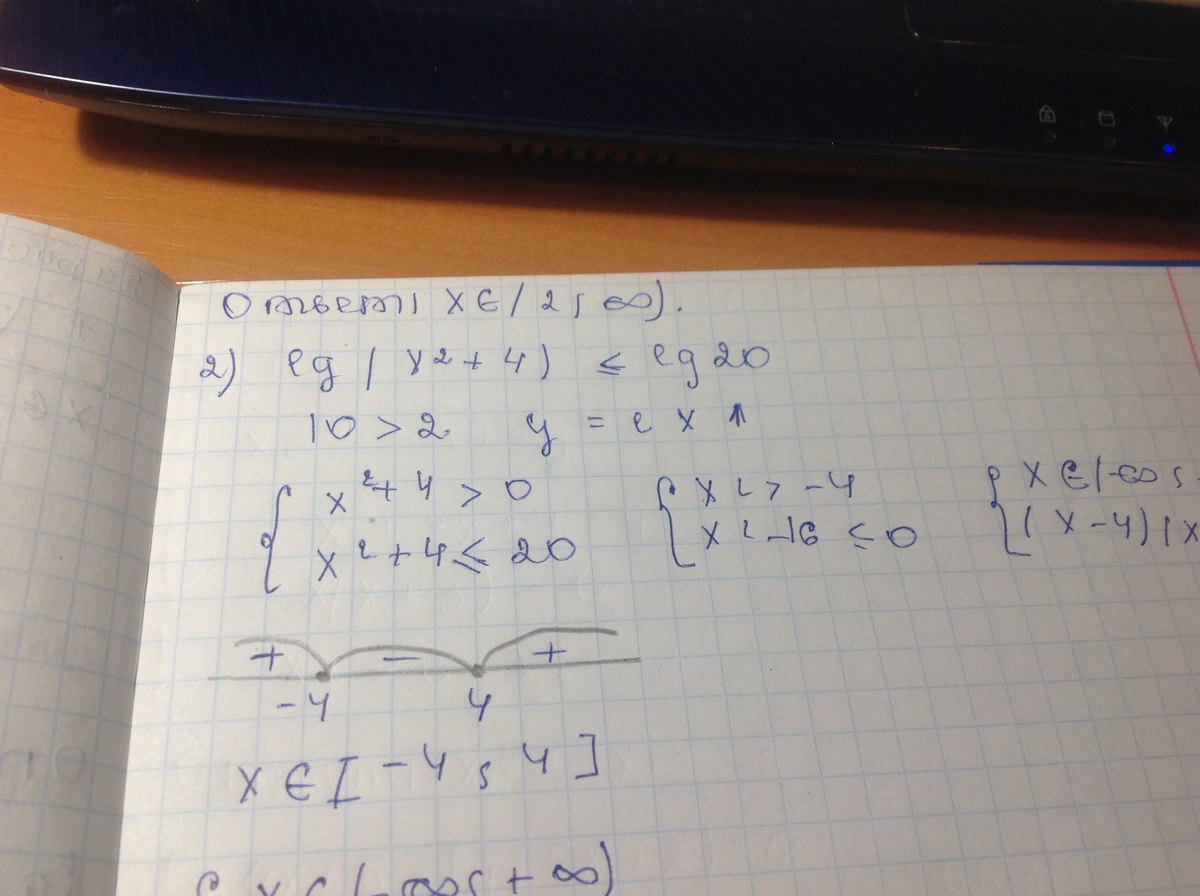 Ответ: x ∈ (2; ∞).
2) lg (x² + 4) ≤ lg 20
10 > 2 y = l x ↑
{ x² + 4 > 0 { x² > -4 { x ∈ (-∞;
{ x² + 4 ≤ 20 { x² - 16 ≤ 0 { (x - 4) (x
+ - +
-4 4
x ∈ [-4; 4]
x ∈ (-∞; +∞)